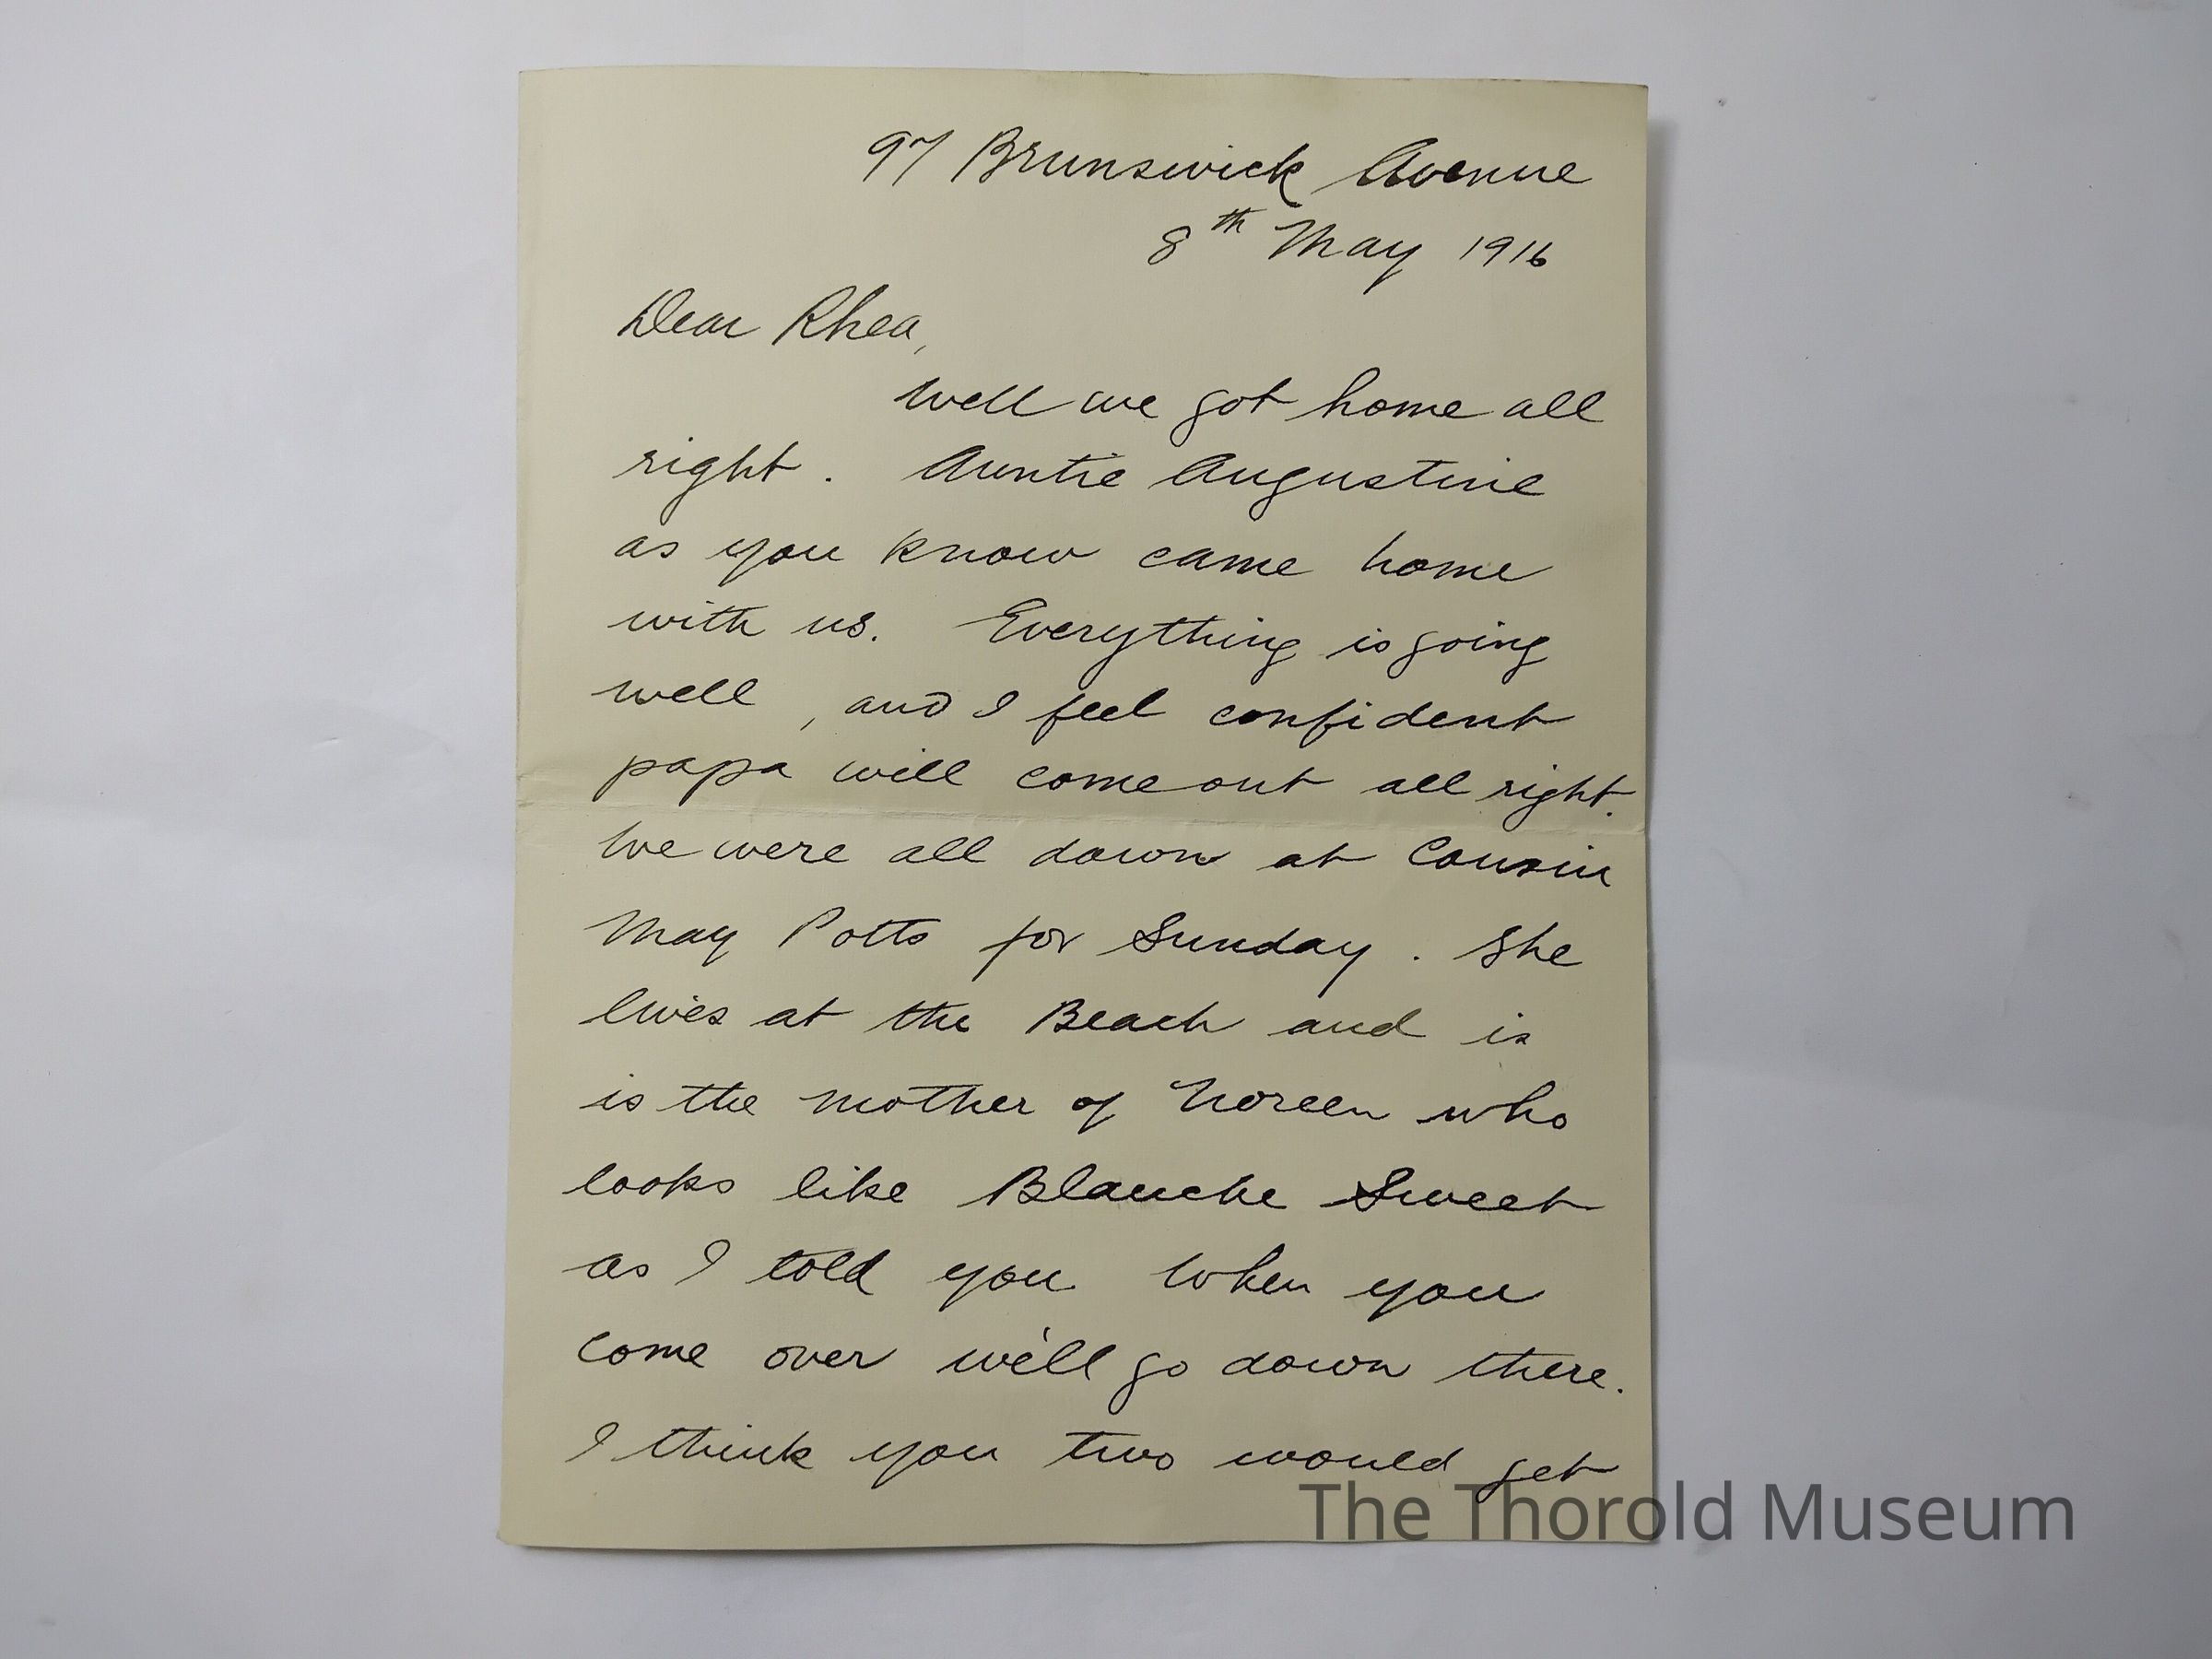 97 Brunswick Avenue
8th May 1916
Dear Rhea,
Well we got home all
right. Auntie Augustine
as you know came home
with us. Everything is going
well, and I feel confident
papa will come out all right.
We were all down at Cousin
May Potts for Sunday. She
lives at the Beach and is
is the mother of Noreen who
looks like Blanche Sweet
as I told you When you
come over we'll go down there.
I think you two would get
The Thorold Museum